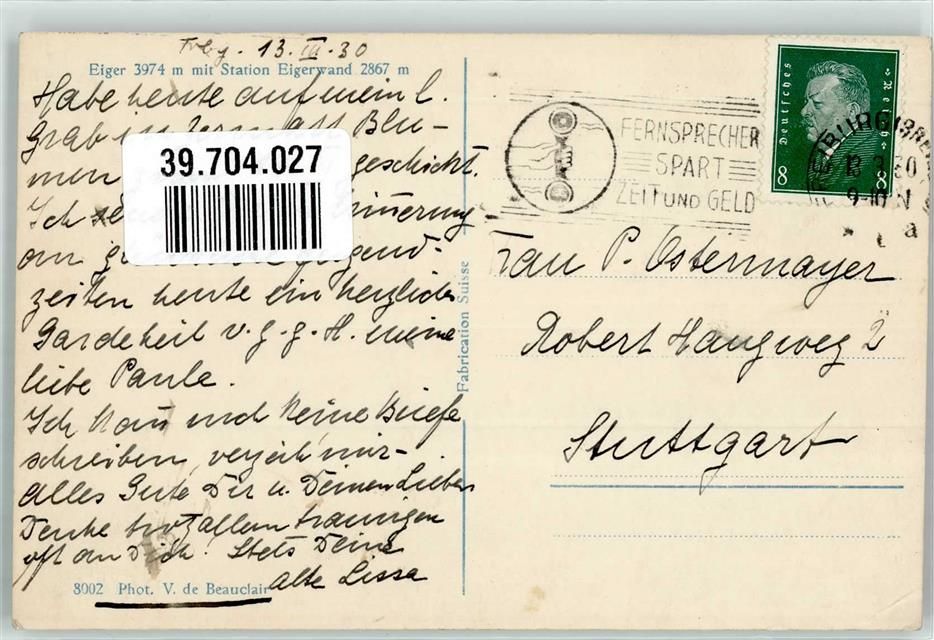 Frbg. 13. III. 30
Eiger 3974 m mit Station Eigerwand 2867 m
Habe heute auf mein l.
Grab in Zermatt Blu-
men geschickt.
Ich
an
zeiten heute ein herzliches
v. g. g. H. meine
liebe Paula.
Ich kann noch keine Briefe
schreiben, verzeih mir.
Alles Gute Dir u. Deinen Lieben
Denke trotz allem traurigen
oft an Dich. Stets Deine
alte Lissa
8002 Phot. V. de Beauclair
39.704.027
Fabrication Suisse
FERNSPRECHER
SPART
ZEIT UND GELD
Deutsches Reich
8 8
FREIBURG (BREISG
13.3.30
9-10 N
a
Frau P. Ostermayer
Robert Haugweg 2
Stuttgart